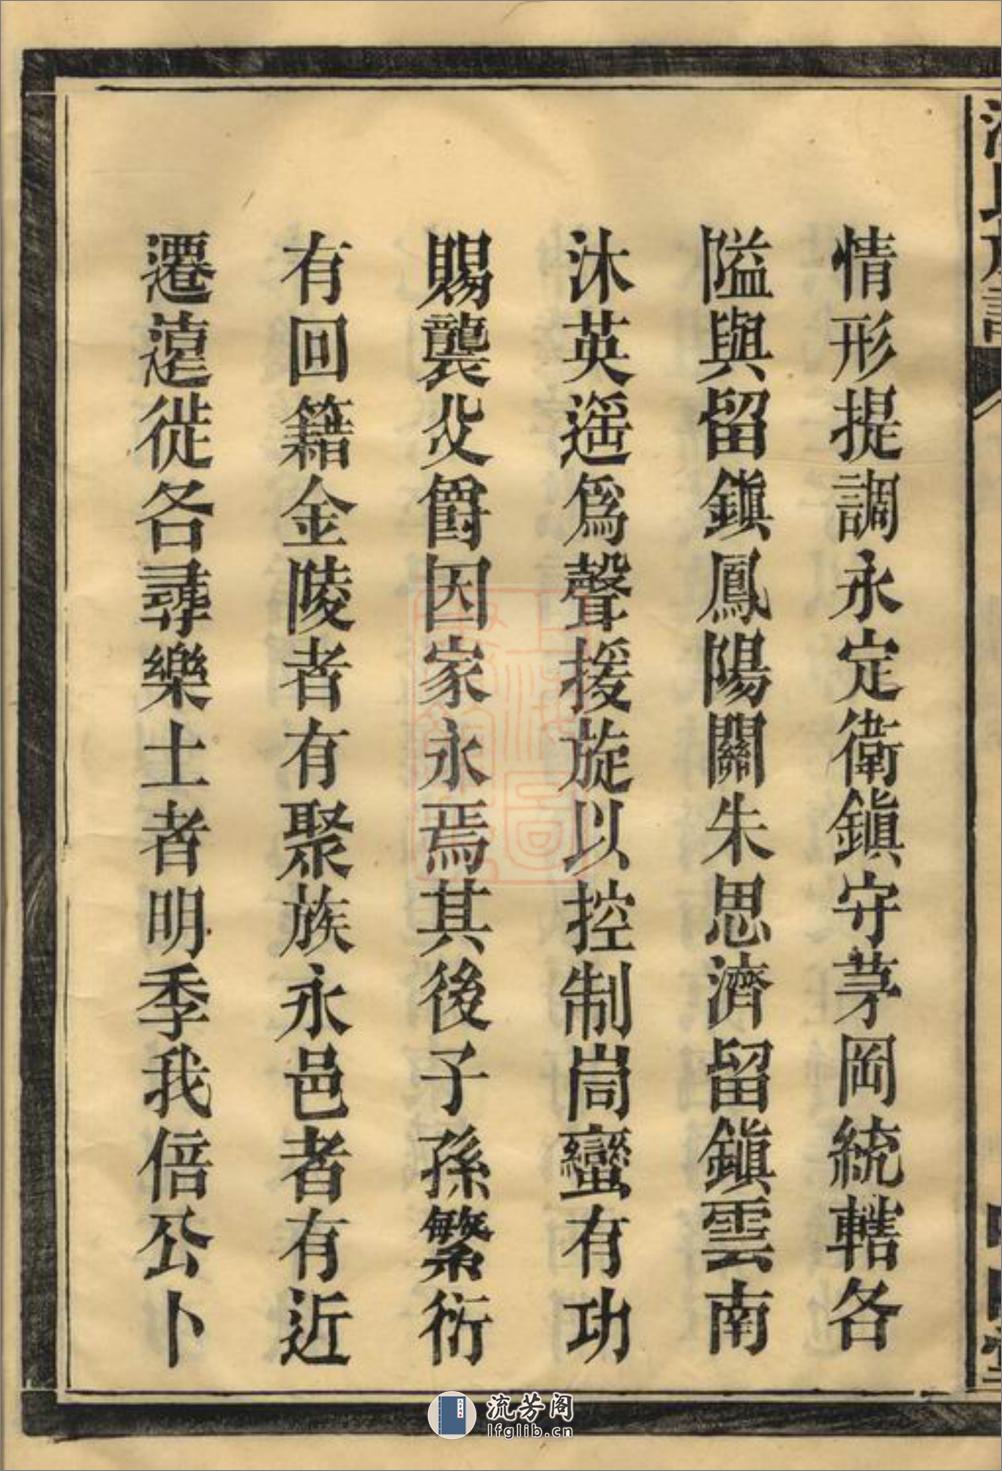 情形提調永定衛鎮守茅岡統轄各
隘與留鎮鳳陽關朱思濟留鎮雲南
沐英遥爲聲援旋以控制峝蠻有功
賜襲父爵因家永焉其後子孫繁衍
有回籍金陵者有聚族永邑者有近
遷遠徙各尋樂土者明季我倍公卜
流芳阁
lfglib.cn